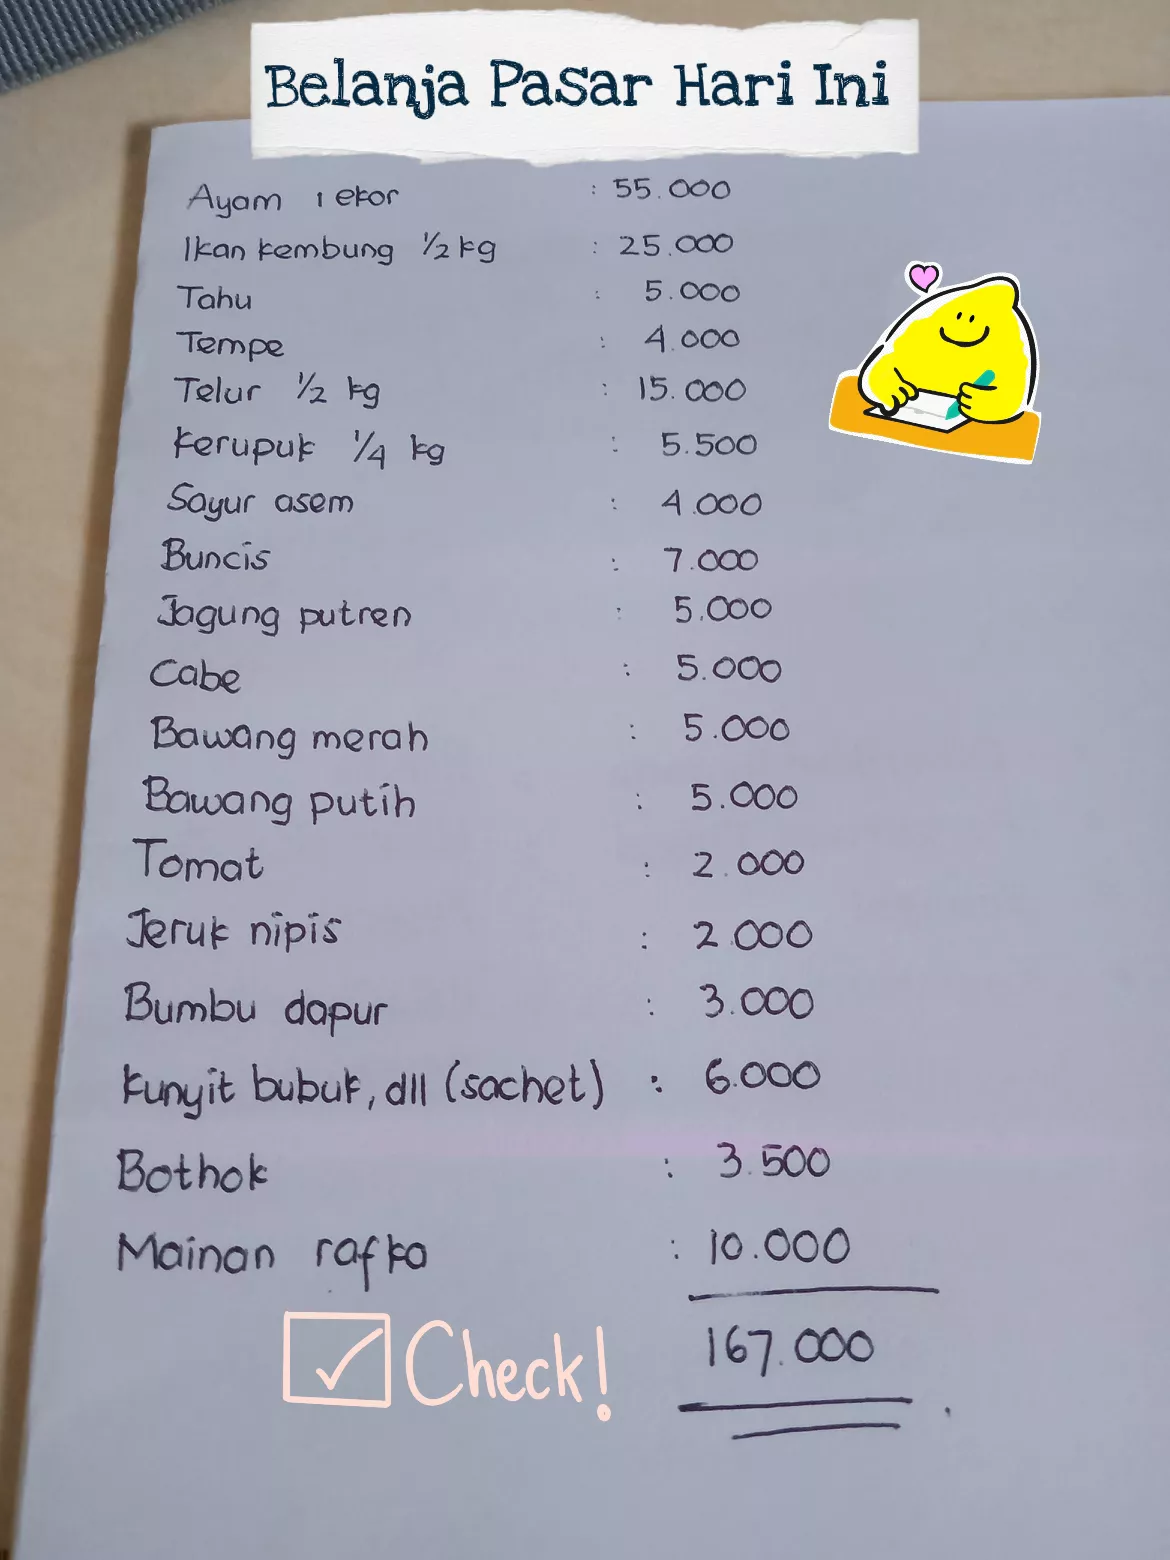 Belanja Pasar Hari Ini
Ayam 1 ekor : 55.000
Ikan kembung 1/2 kg : 25.000
Tahu : 5.000
Tempe : 4.000
Telur 1/2 kg : 15.000
Kerupuk 1/4 kg : 5.500
Sayur asem : 4.000
Buncis : 7.000
Jagung putren : 5.000
Cabe : 5.000
Bawang merah : 5.000
Bawang putih : 5.000
Tomat : 2.000
Jeruk nipis : 2.000
Bumbu dapur : 3.000
Kunyit bubuk, dll (sachet) : 6.000
Bothok : 3.500
Mainan rafka : 10.000
167.000
Check!